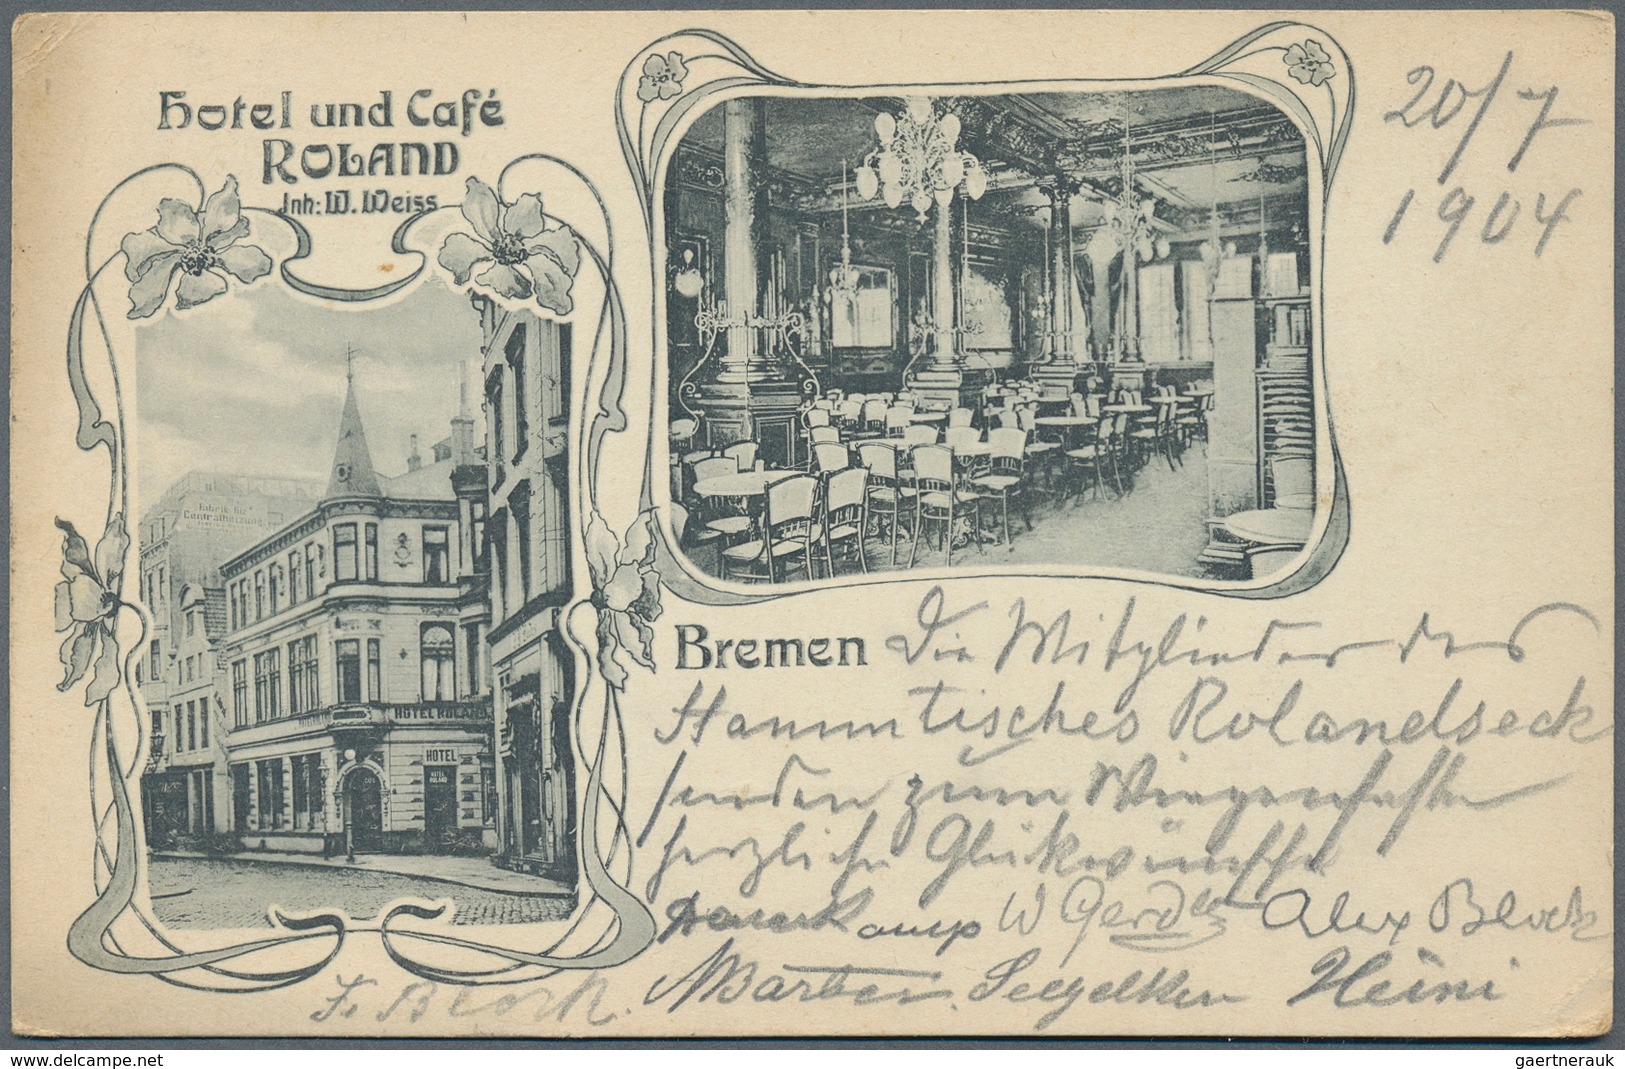 Hotel und Café
ROLAND
Inh: W. Weiss
20/7
1904
Fabrik für
Centralheizung
HOTEL ROLAND
HOTEL
HOTEL
ROLAND
CAFE
Bremen
Die Mitglieder des
Stammtisches Rolandseck
senden zum Wiegenfeste
herzliche Glückwünsche
W Gerdes Alex Block
F. Block. Seegelken Heini
delcampe.net
gaertnerauk